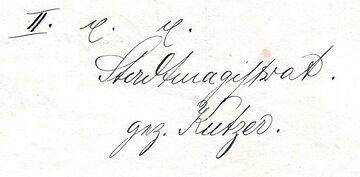 II. n. n.
Stadtmagistrat.
gez. Kutzer.